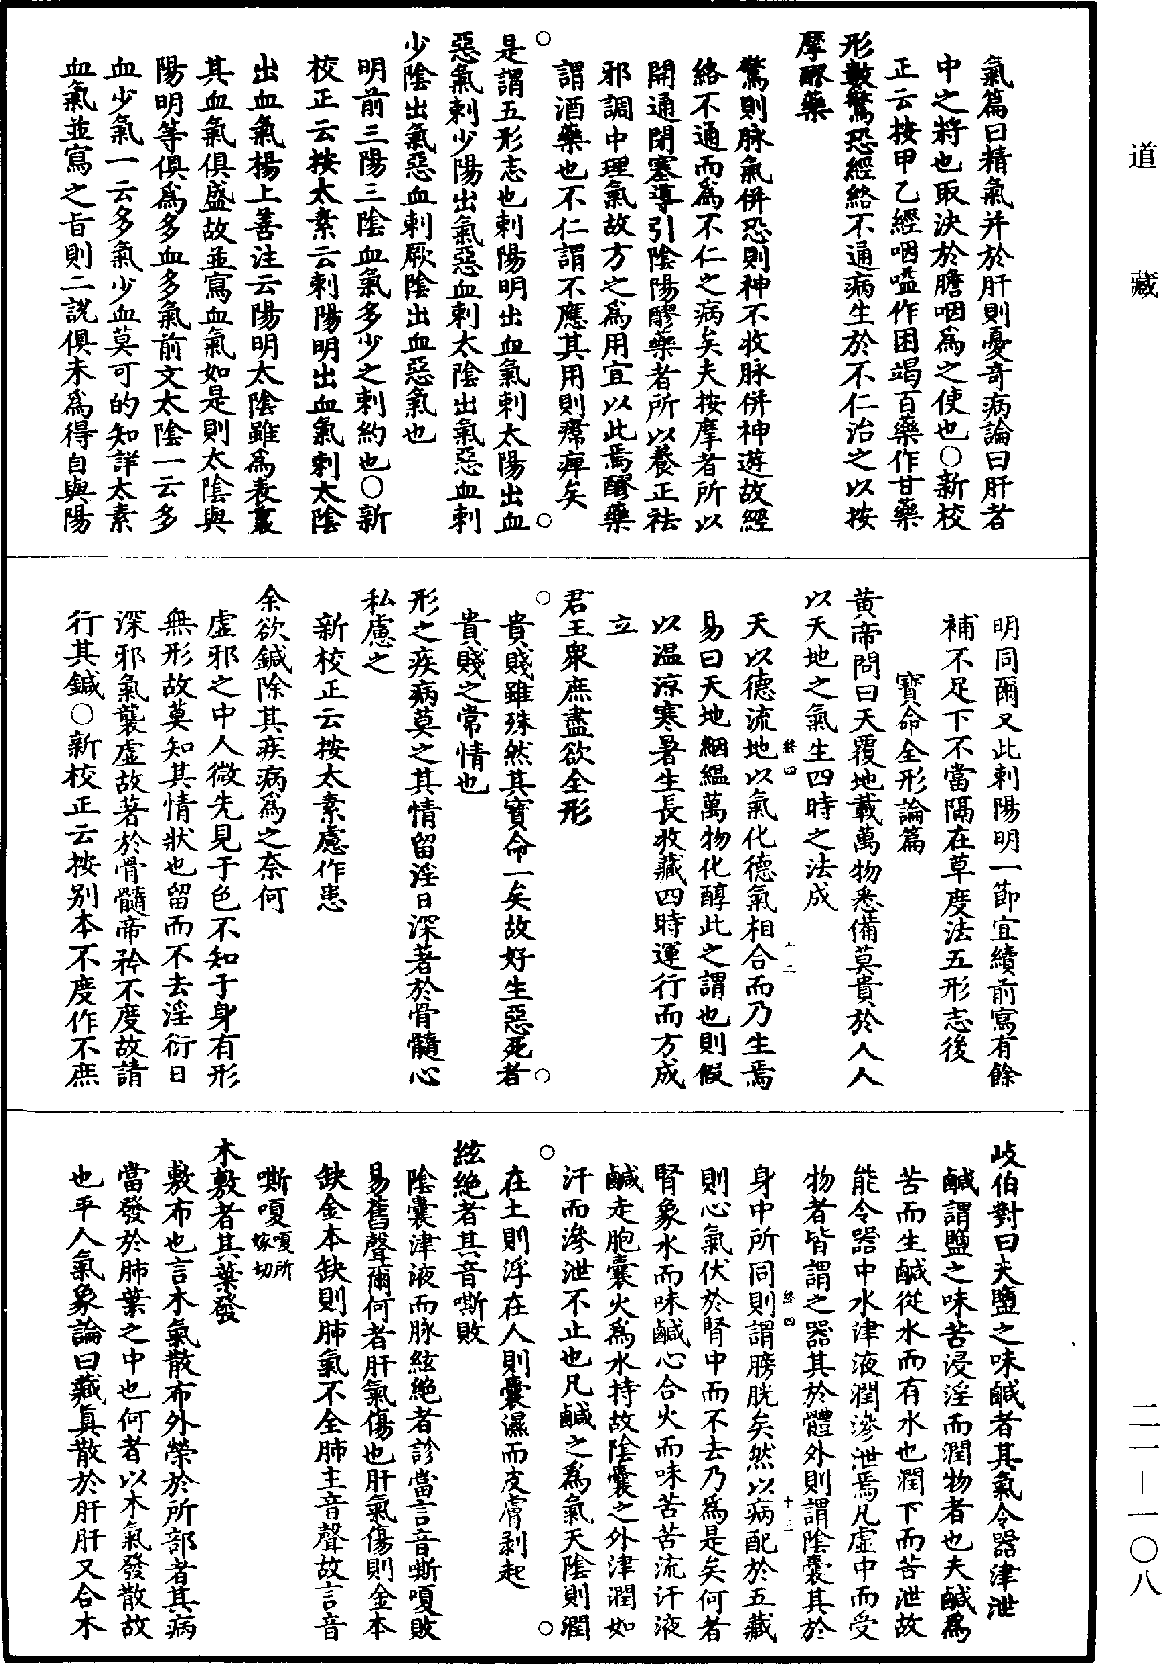 道藏
二一—一〇八
氣篇曰精氣并於肝則憂奇病論曰肝者
中之將也取決於膽咽爲之使也○新校
正云按甲乙經咽嗌作困竭百藥作甘藥
形數驚恐經絡不通病生於不仁治之以按
摩醪藥
驚則脉氣併恐則神不收脉併神遊故經
絡不通而爲不仁之病矣夫按摩者所以
開通閉塞導引陰陽醪藥者所以養正祛
邪調中理氣故方之爲用宜以此焉醪藥
謂酒藥也不仁謂不應其用則㿏痺矣
是謂五形志也刺陽明出血氣刺太陽出血
惡氣刺少陽出氣惡血刺太陰出氣惡血刺
少陰出氣惡血刺厥陰出血惡氣也
明前三陽三陰血氣多少之刺約也○新
校正云按太素云刺陽明出血氣刺太陰
出血氣楊上善注云陽明太陰雖爲表裏
其血氣俱盛故並寫血氣如是則太陰與
陽明等俱爲多血多氣前文太陰一云多
血少氣一云多氣少血莫可的知詳太素
血氣並寫之旨則二說俱未爲得自與陽
明同爾又此刺陽明一節宜續前寫有餘
補不足下不當隔在草度法五形志後
寶命全形論篇
黄帝問曰天覆地載萬物悉備莫貴於人人
以天地之氣生四時之法成
天以德流地以氣化德氣相合而乃生焉
易曰天地絪緼萬物化醇此之謂也則假
以温涼寒暑生長收藏四時運行而方成
立
君王衆庶盡欲全形
貴賤雖殊然其寶命一矣故好生惡死者
貴賤之常情也
形之疾病莫之其情留淫日深著於骨髓心
私慮之
新校正云按太素慮作患
余欲鍼除其疾病爲之奈何
虛邪之中人微先見于色不知于身有形
無形故莫知其情狀也留而不去淫衍日
深邪氣襲虛故著於骨髓帝矜不度故請
行其鍼○新校正云按别本不度作不庶
歧伯對曰夫鹽之味鹹者其氣令器津泄
鹹謂鹽之味苦浸淫而潤物者也夫鹹爲
苦而生鹹從水而有水也潤下而苦泄故
能令器中水津液潤滲泄焉凡虛中而受
物者皆謂之器其於體外則謂陰囊其於
身中所同則謂膀胱矣然以病配於五藏
則心氣伏於腎中而不去乃爲是矣何者
腎象水而味鹹心合火而味苦苦流汗液
鹹走胞囊火爲水持故陰囊之外津潤如
汗而滲泄不止也凡鹹之爲氣天陰則潤
在土則浮在人則囊濕而皮膚剥起
絃絶者其音嘶敗
陰囊津液而脉絃絶者診當言音嘶嗄敗
易舊聲爾何者肝氣傷也肝氣傷則金本
缺金本缺則肺氣不全肺主音聲故言音
嘶嗄嗄所嫁切
木敷者其葉發
敷布也言木氣散布外榮於所部者其病
當發於肺葉之中也何者以木氣發散故
也平人氣象論曰藏真散於肝肝又合木